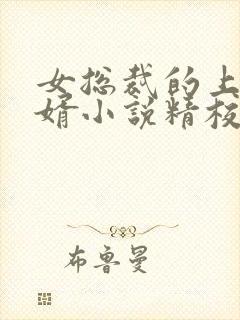 女总裁的上
婿小说精校
布鲁曼